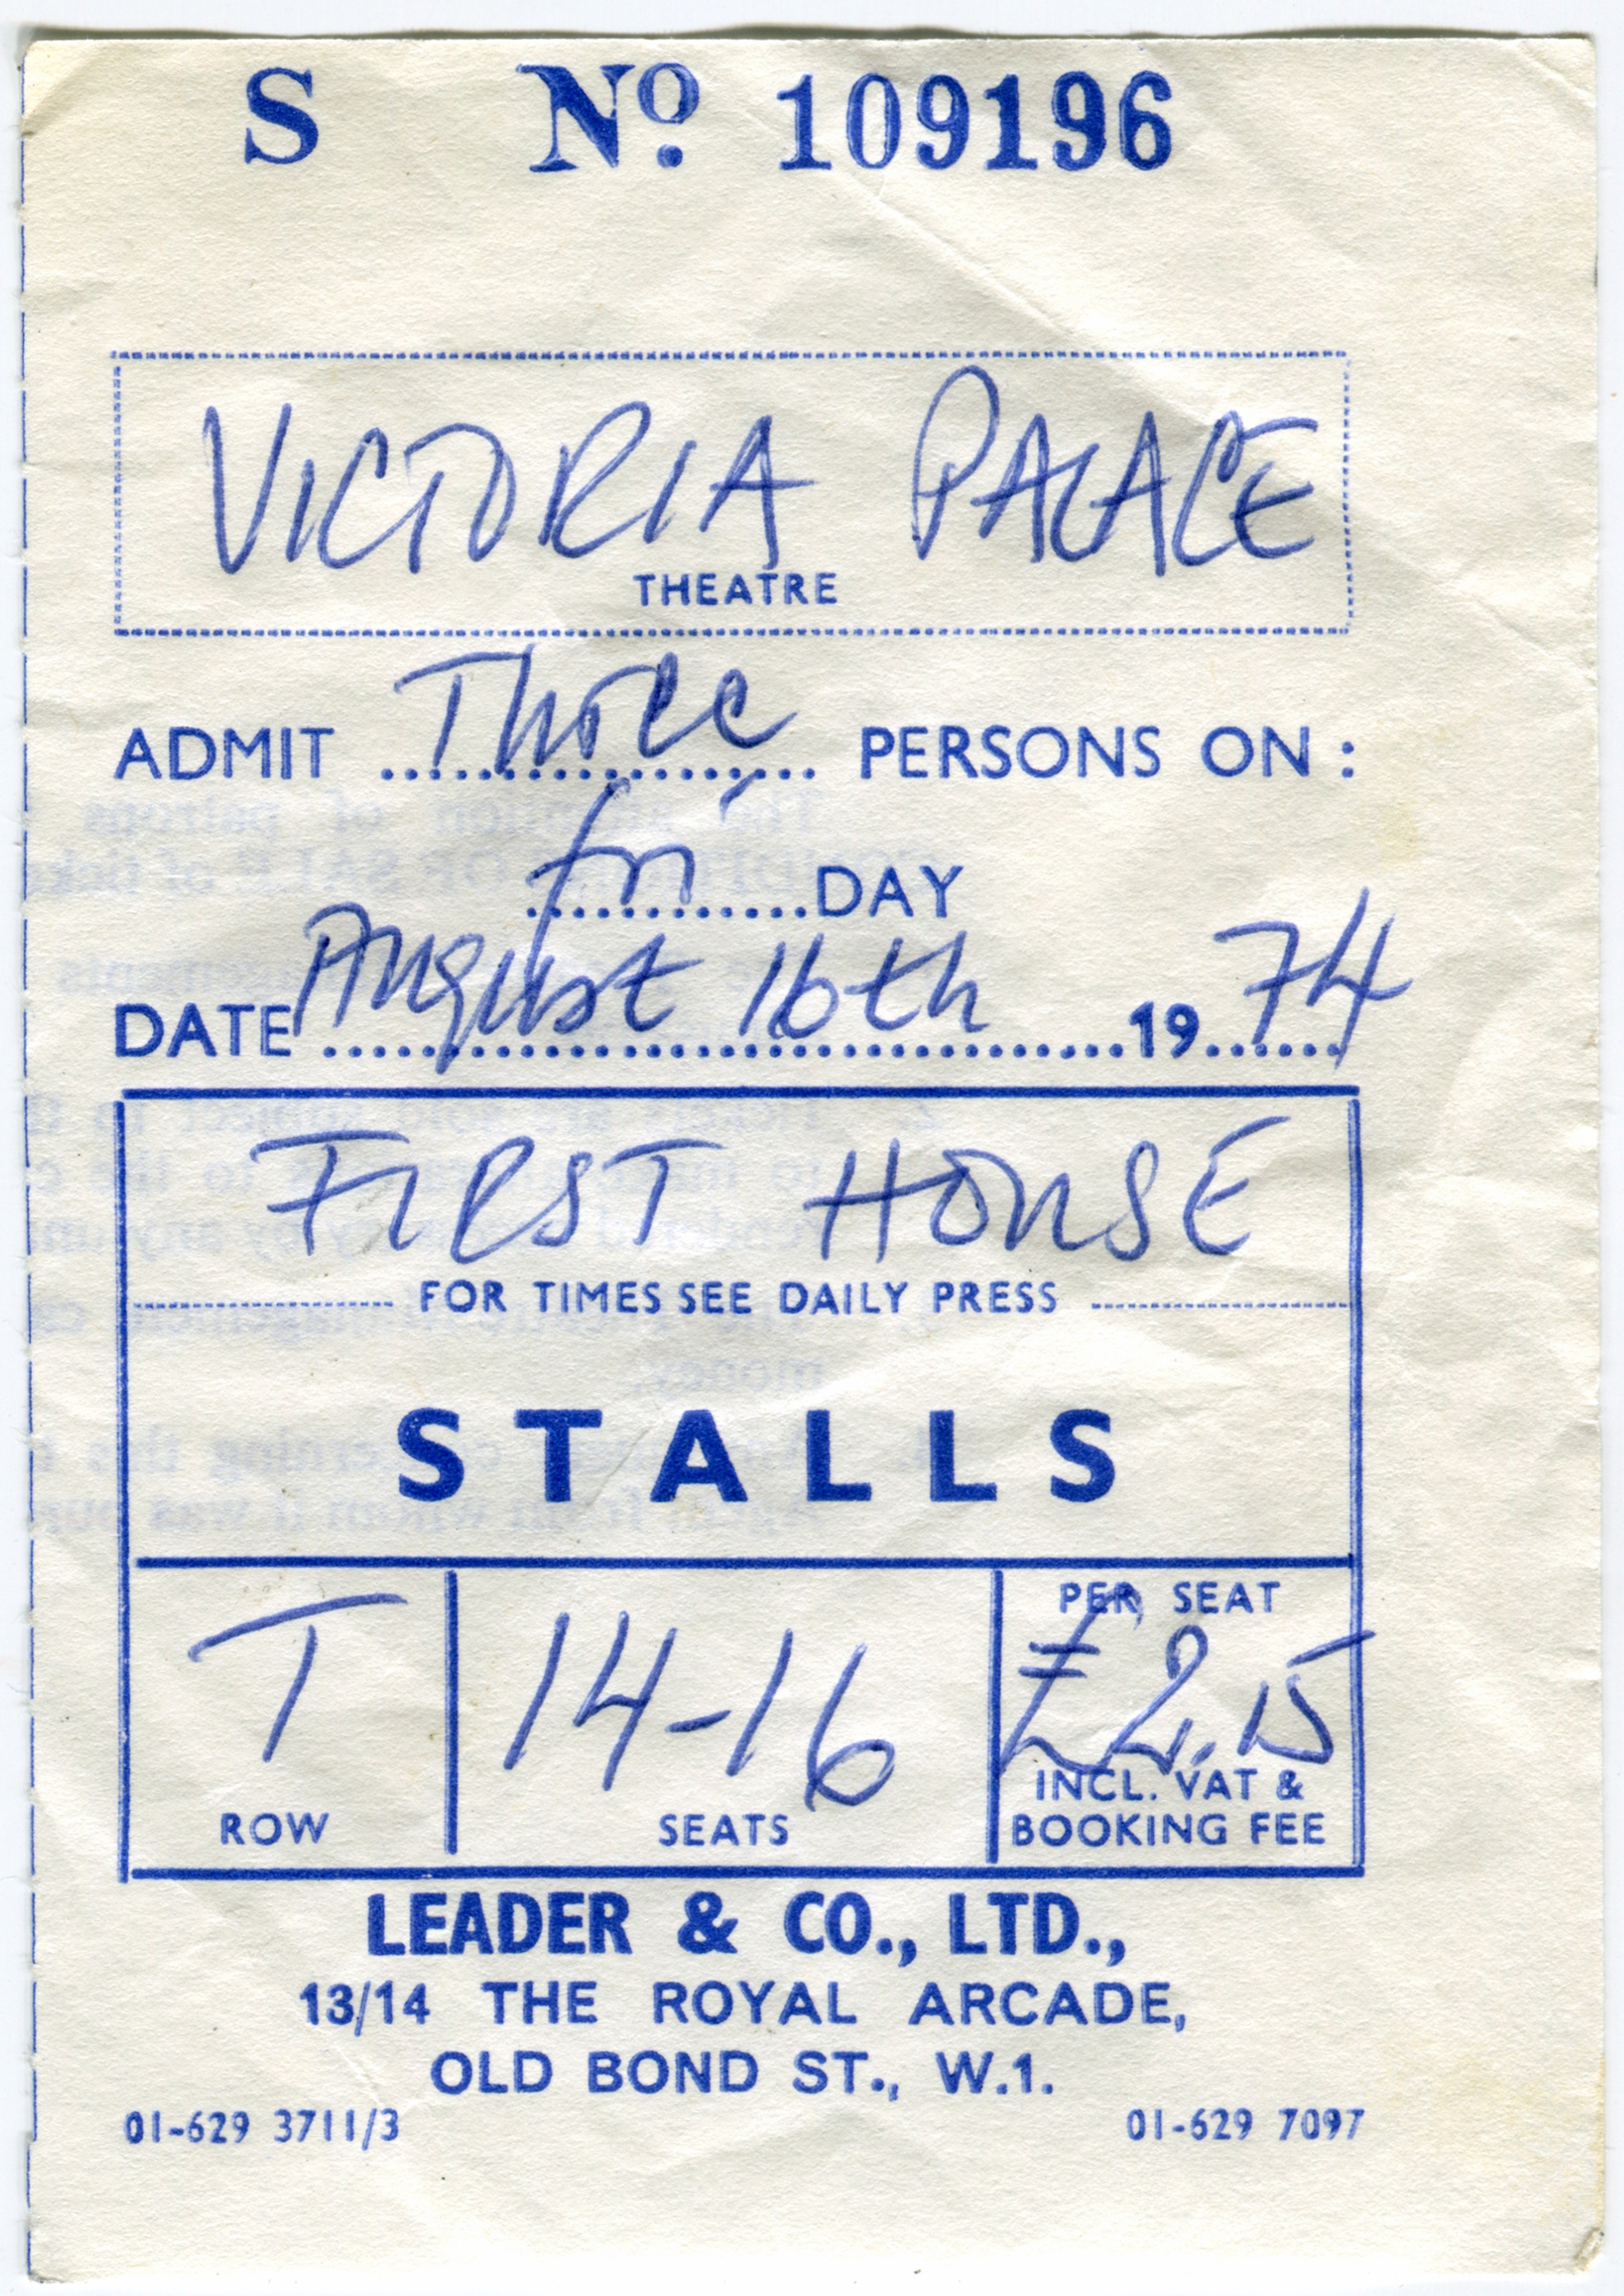 S Nº 109196
VICTORIA PALACE
THEATRE
ADMIT Three PERSONS ON :
fri DAY
DATE August 16th 1974
FIRST HOUSE
FOR TIMES SEE DAILY PRESS
STALLS
PER SEAT
T 14-16 £2.15
INCL. VAT &
ROW SEATS BOOKING FEE
LEADER & CO., LTD.,
13/14 THE ROYAL ARCADE,
OLD BOND ST., W.1.
01-629 3711/3 01-629 7097